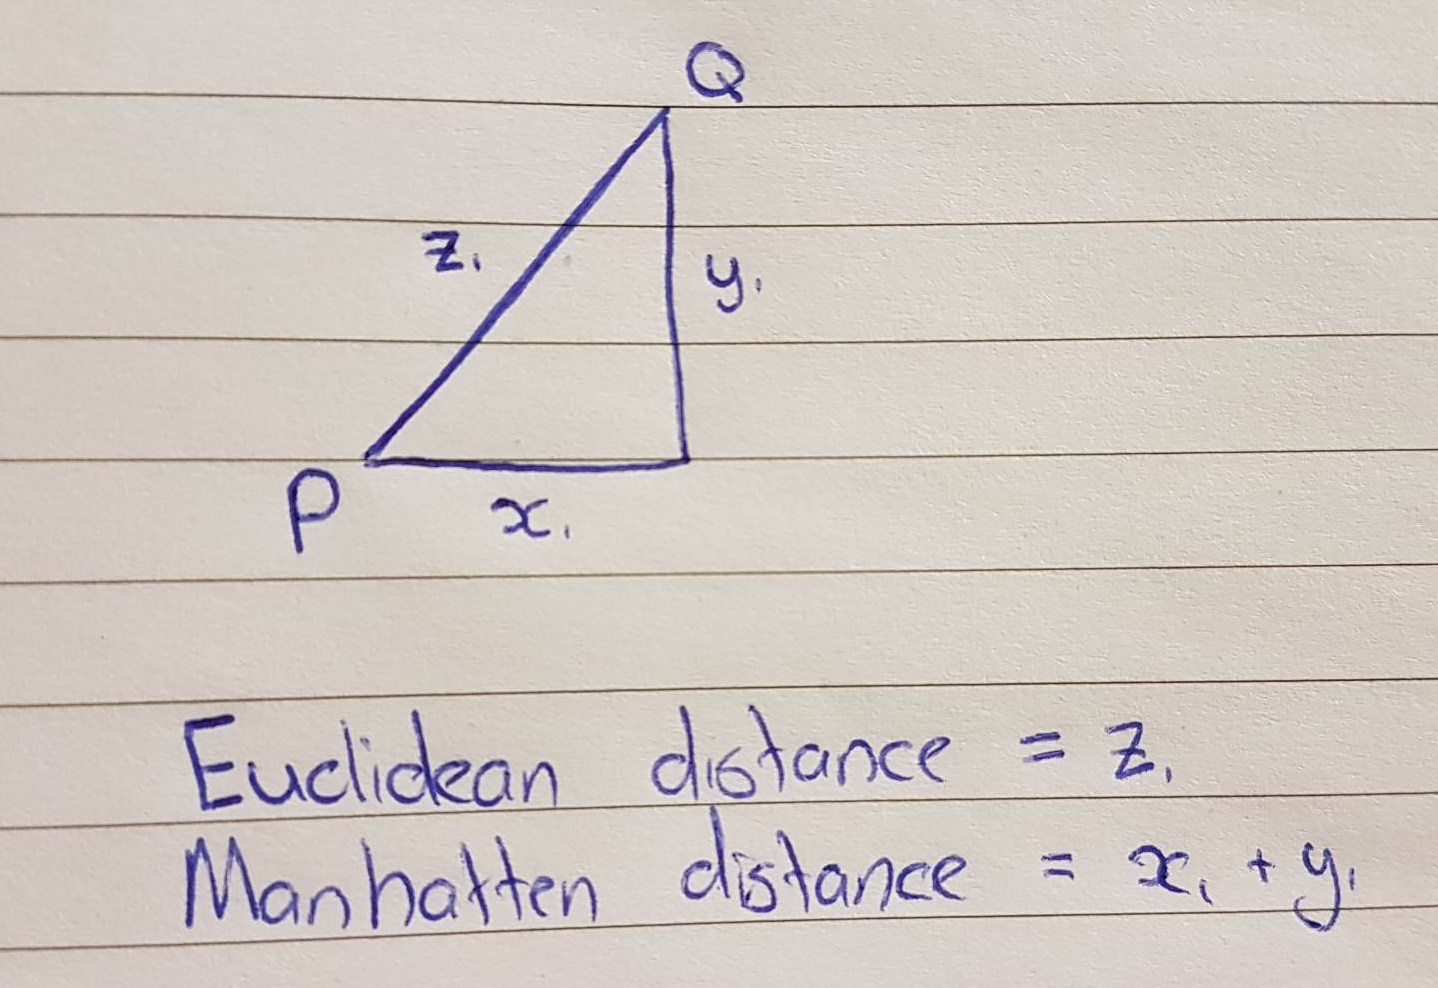 Q
z₁
y₁
P
x₁
Euclidean distance = z₁
Manhatten distance = x₁ + y₁